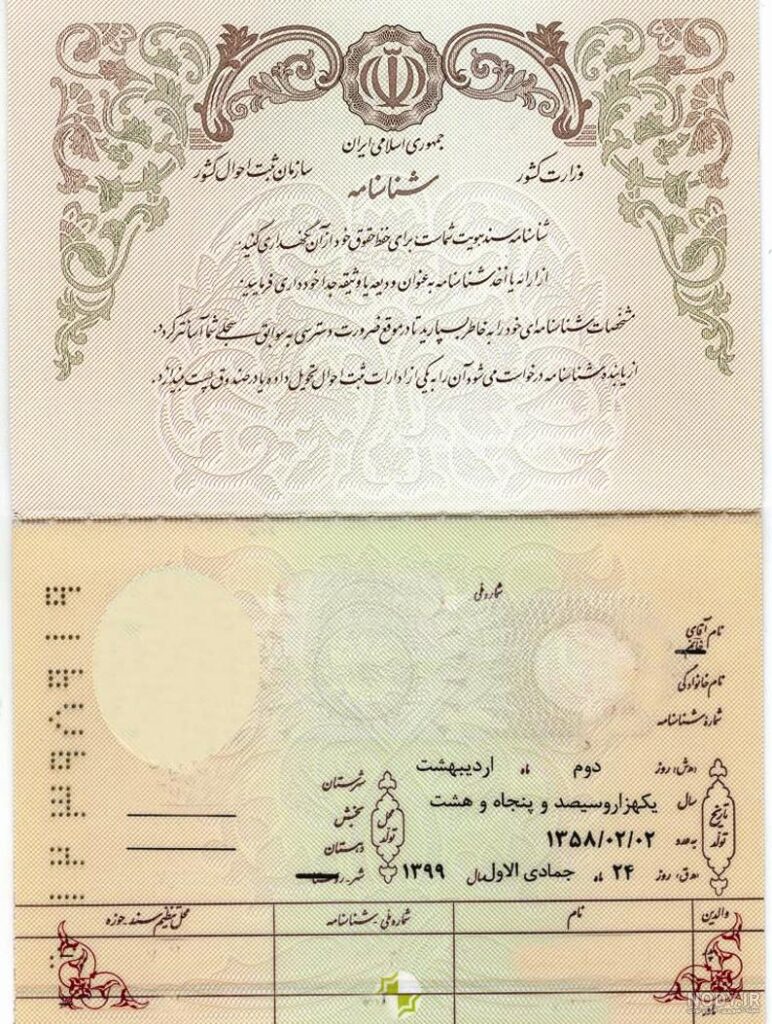 جمهوری اسلامی ایران
وزارت کشور
سازمان ثبت احوال کشور
شناسنامه
شناسنامه سند هویت شماست برای حفظ حقوق خود از آن نگهداری کنید.
از ارائه یا أخذ شناسنامه به عنوان ودیعه یا وثیقه جدا خودداری فرمایید.
مشخصات شناسنامه‌ای خود را به خاطر بسپارید تا در موقع ضرورت دسترسی به سوابق سجلی شما آسانتر گردد.
از یابنده شناسنامه درخواست می‌شود آن را به یکی از ادارات ثبت احوال تحویل داده یا در صندوق پست بیندازد.
شماره ملی
نام آقای
خانم
نام خانوادگی
شماره شناسنامه
تاریخ تولد
ه‍.ش: روز دوم ماه اردیبهشت
سال یکهزاروسیصد و پنجاه و هشت
به عدد ۱۳۵۸/۰۲/۰۲
ه‍.ق: روز ۲۴ ماه جمادی الاول سال ۱۳۹۹
محل تولد
شهرستان
بخش
دهستان
شهر
والدین نام شماره ملی - شناسنامه محل تنظیم سند - حوزه
پدر
مادر
NODY.IR